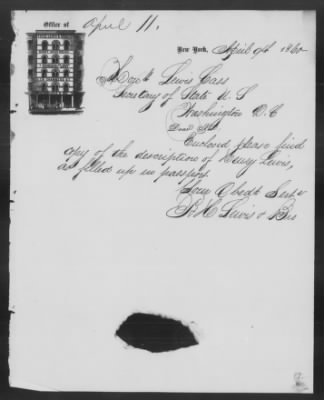 Office of
April 11.
New York, April 9th 1860
Lewis Cass
Secretary of State U. S
Washington D. C
Dear Sir
Enclosed please find
copy of the description of Henry Lewis,
as filled up in passport.
Your Obedt Servts
Lewis & Bro